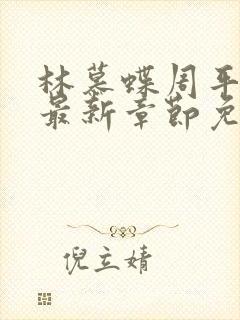 林慕蝶周平
最新章节免
倪立婧